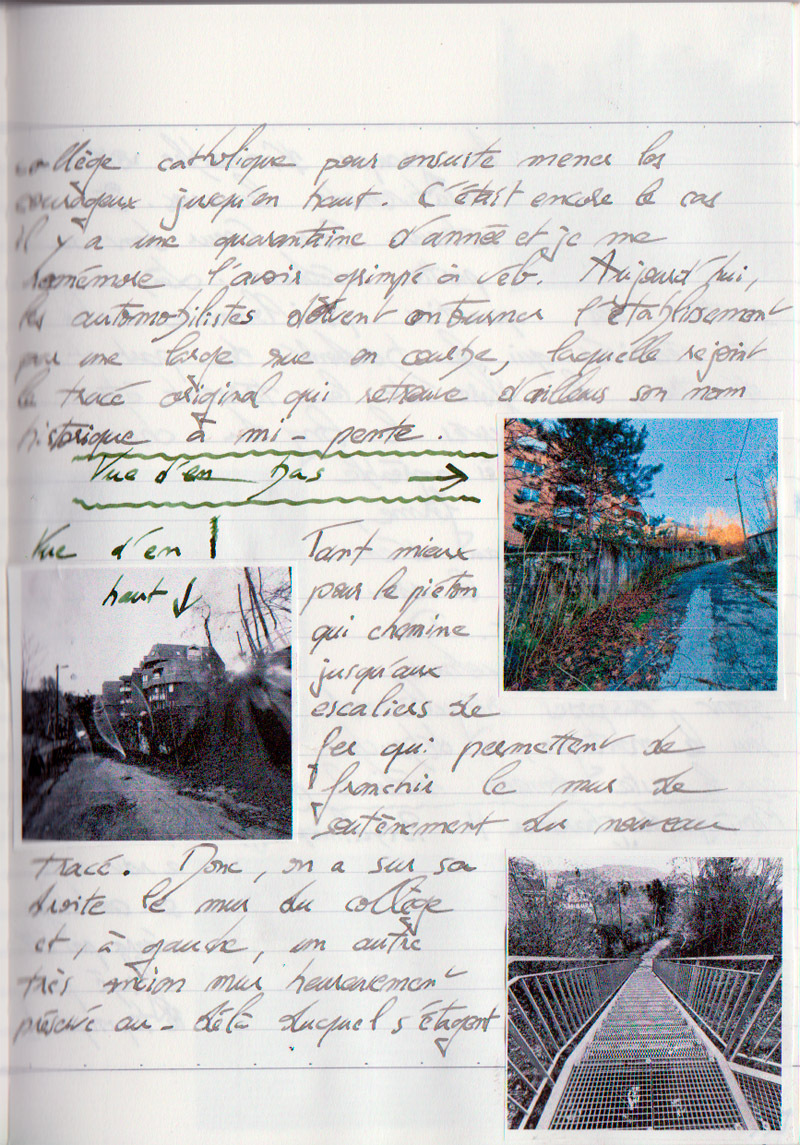 collège catholique pour ensuite mener les
courageux jusqu'en haut. C'était encore le cas
il y a une quarantaine d'année et je me
remémore l'avoir grimpé à vélo. Aujourd'hui,
les automobilistes doivent contourner l'établissement
par une large rue en courbe, laquelle rejoint
le tracé original qui retrouve d'ailleurs son nom
historique à mi-pente.
Vue d'en bas →
Vue d'en
haut ↓
Tant mieux
pour le piéton
qui chemine
jusqu'aux
escaliers de
fer qui permettent de
franchir le mur de
soutènement du nouveau
tracé. Donc, on a sur sa
droite le mur du collège
et, à gauche, un autre
très ancien mur heureusement
préservé au-delà duquel s'étagent